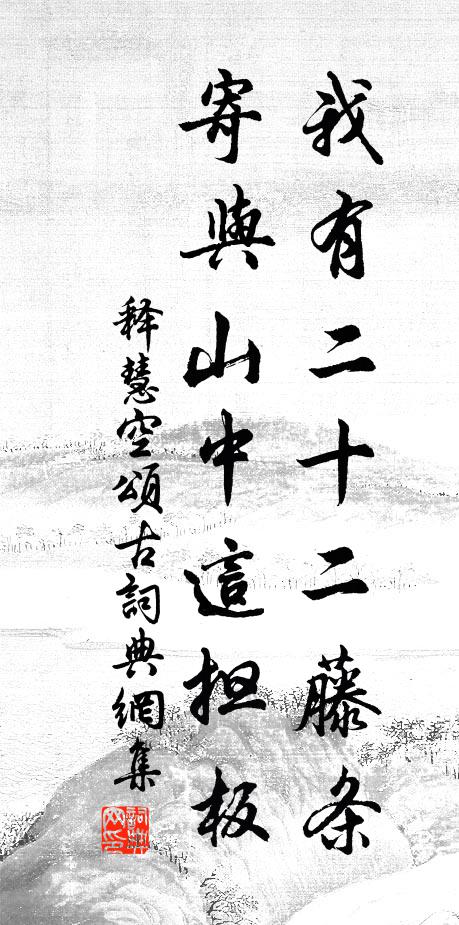 我有二十二藤条
寄與山中這担板
释慧空頌古詞典網集